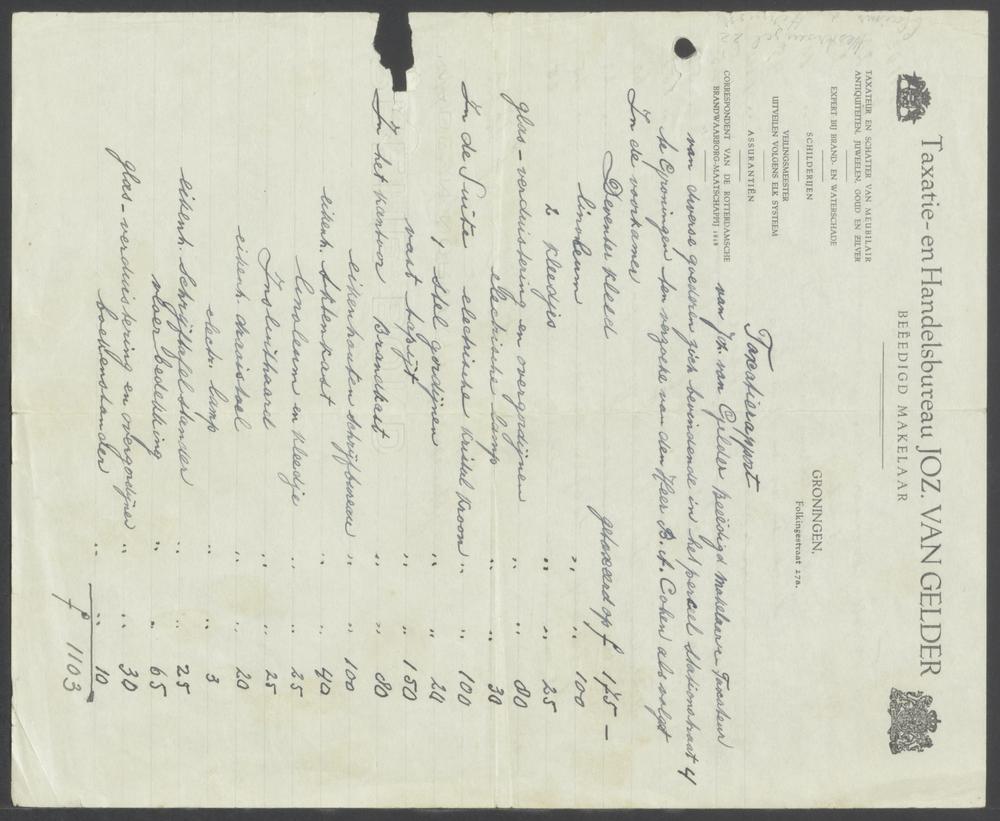 Taxatie- en Handelsbureau JOZ. VAN GELDER
BEËEDIGD MAKELAAR
TAXATEUR EN SCHATTER VAN MEUBILAIR
ANTIQUITEITEN, JUWEELEN, GOUD EN ZILVER
EXPERT BIJ BRAND- EN WATERSCHADE
SCHILDERIJEN
VEILINGSMEESTER
UITVEILEN VOLGENS ELK SYSTEEM
ASSURANTIËN
CORRESPONDENT VAN DE ROTTERDAMSCHE
BRANDWAARBORG-MAATSCHAPPIJ
GRONINGEN,
Folkingestraat 17a.
Taxatierapport
van Joz. van Gelder beëedigd makelaar Taxateur
van diverse goederen zich bevindende in het perceel Stationstraat 4
te Groningen ten verzoeke van den Heer B. A. Cohen als volgt
In de voorkamer
Deventer kleed getaxeerd op f 175 —
linoleum " " 100
2 kleedjes " " 25
glas-verduistering en overgordijnen " " 80
electrische lamp " " 30
In de Suite electrische kristal kroon " " 100
1 stel gordijnen " " 24
vast tapijt " " 150
In het kantoor Brandkast " " 80
eikenhouten schrijfbureau " " 100
eikenh. aktenkast " " 40
linoleum en kleedje " " 25
Insluithaard " " 25
eikenh. draaistoel " " 20
electr. lamp " " 3
eikenh. schrijftafel stander " " 25
vloerbedekking " " 65
glas-verduistering en overgordijnen " " 30
boekenstander " " 10
f 1103